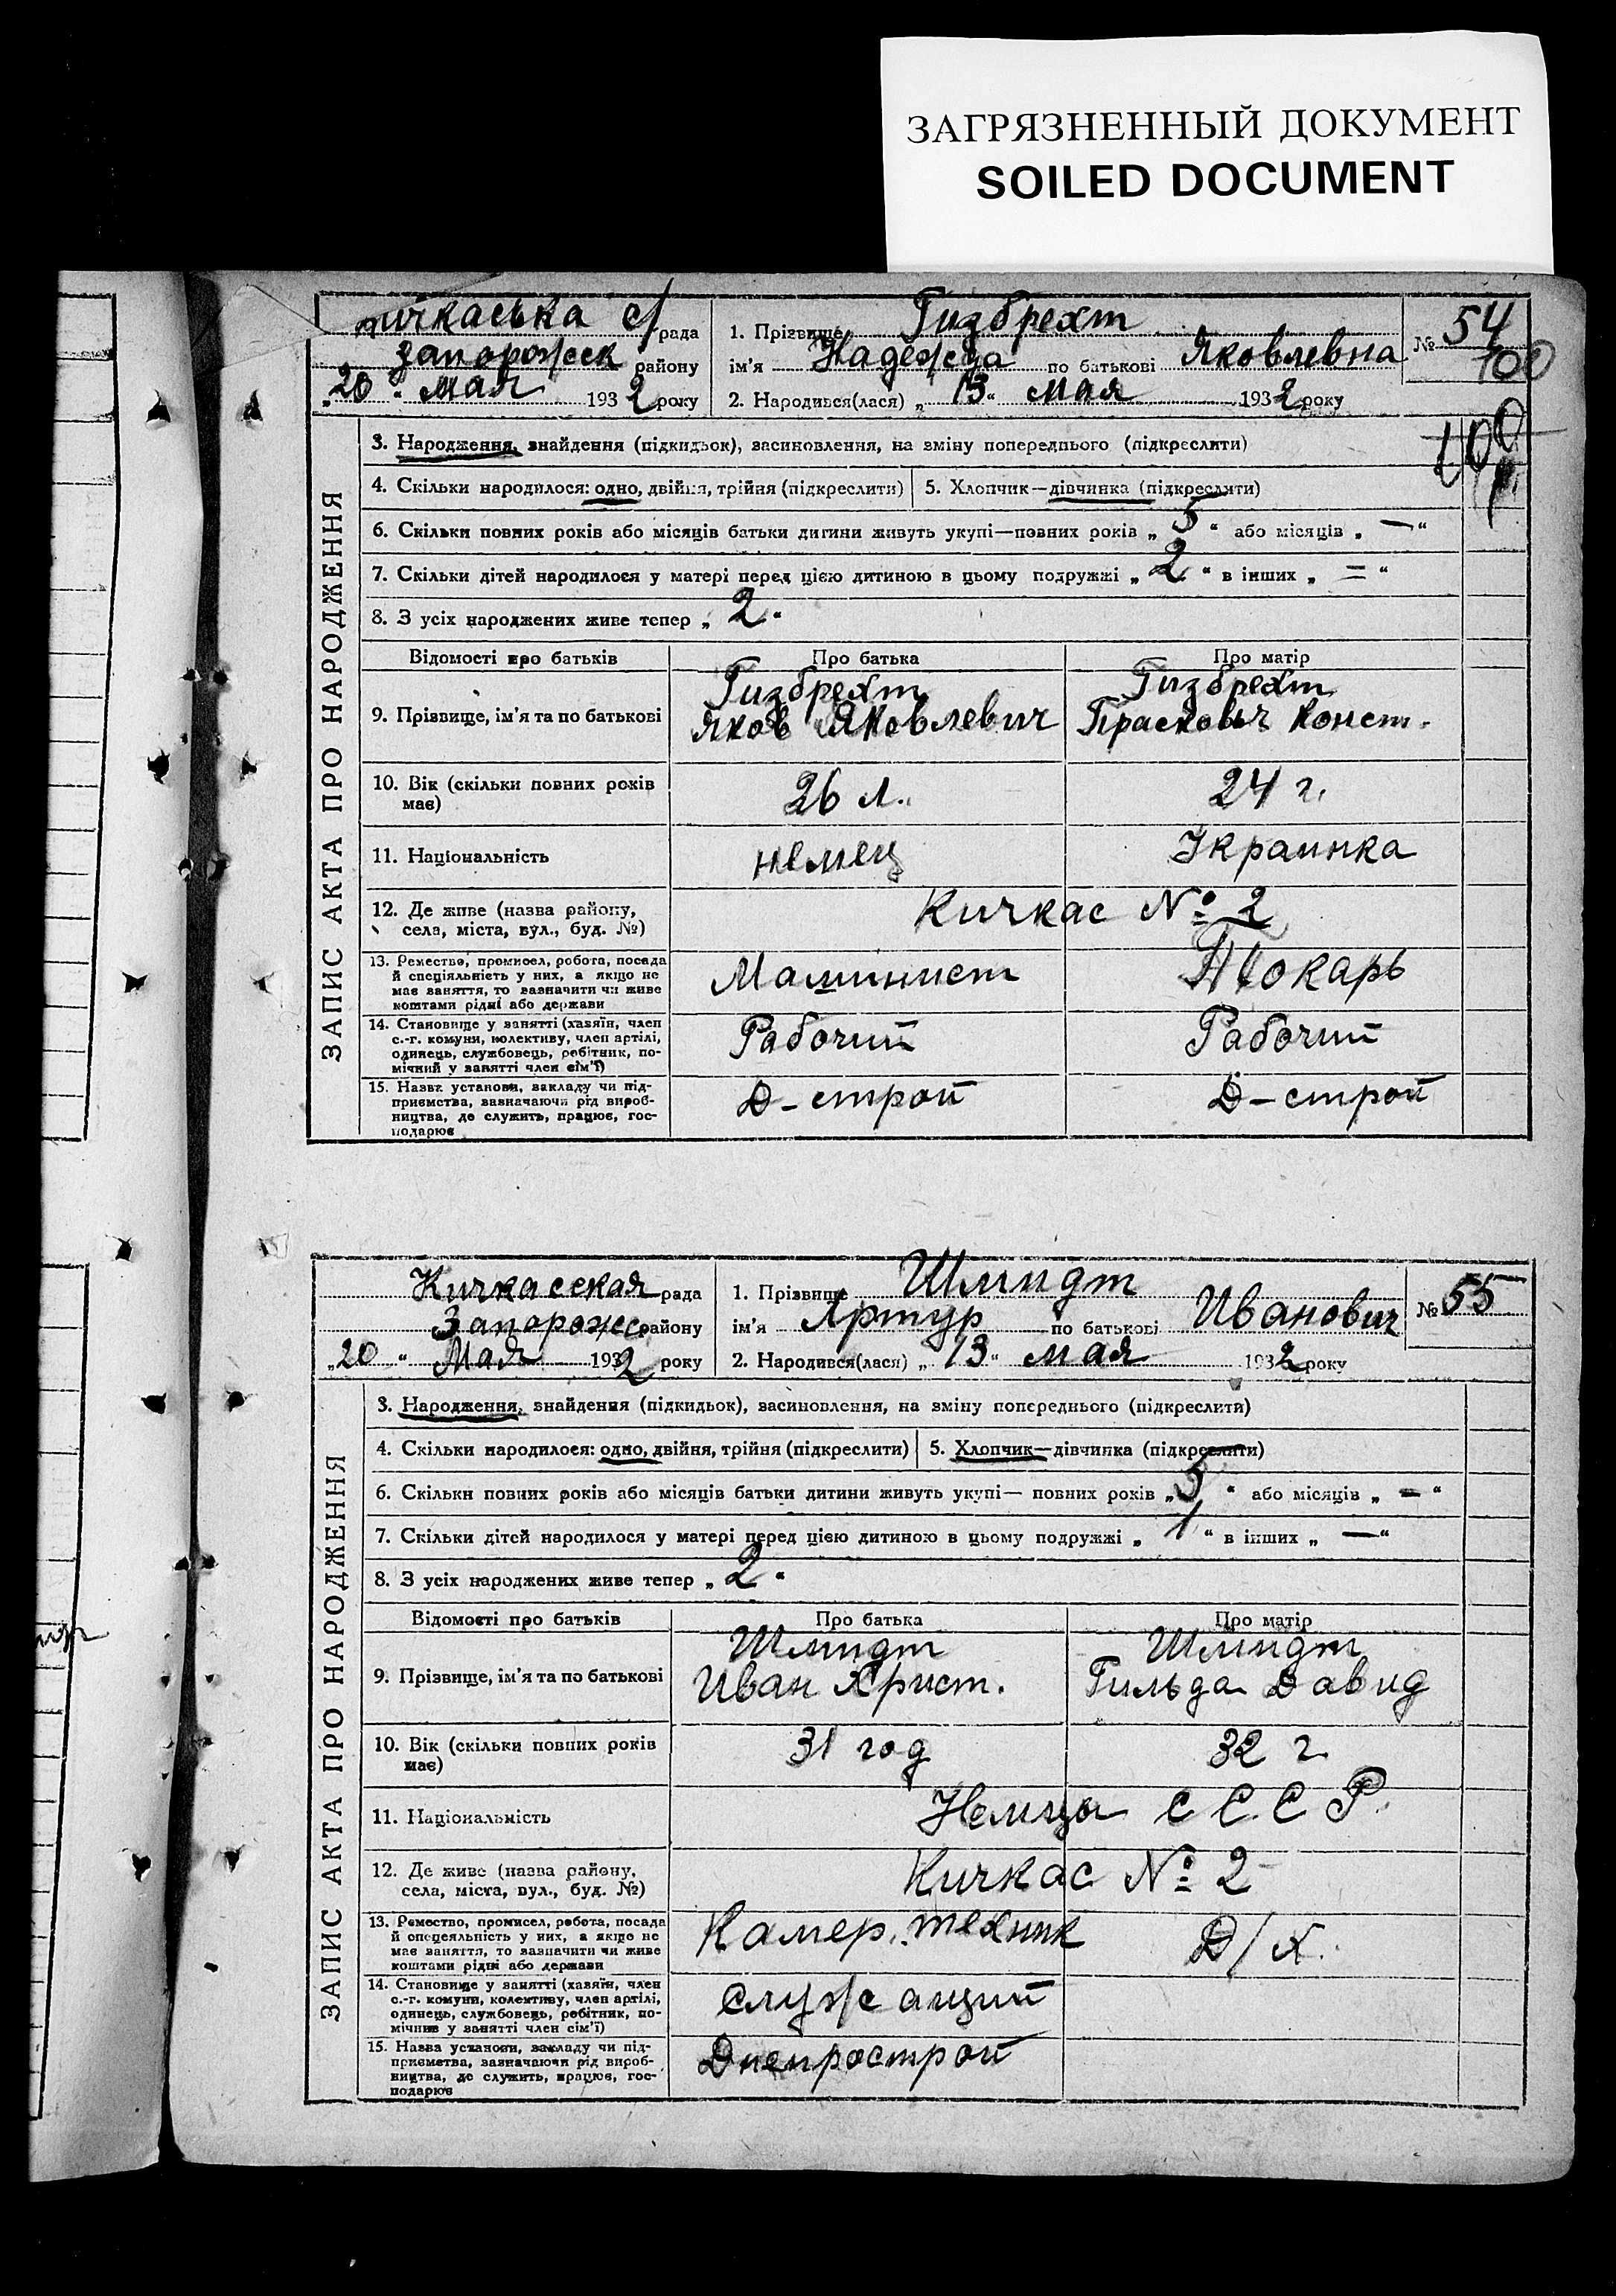 ЗАГРЯЗНЕННЫЙ ДОКУМЕНТ
SOILED DOCUMENT
ичкаська с/рада
Запорожск району
„20“ мая 1932 року
1. Прізвище Гизбрехт
ім'я Надежда по батькові Яковлевна
2. Народився(лася) „13“ мая 1932 року
№ 54
100
100
ЗАПИС АКТА ПРО НАРОДЖЕННЯ
3. Народження, знайдення (підкидьок), васиновлення, на зміну попереднього (підкреслити)
4. Скільки народилося: одно, двійня, трійня (підкреслити) 5. Хлопчик—дівчинка (підкреслити)
6. Скільки повних років або місяців батьки дитини живуть укупі—повних років „5“ або місяців „—“
7. Скільки дітей народилося у матері перед цією дитиною в цьому подружжі „2“ в інших „=“
8. З усіх народжених живе тепер „2“
Відомості про батьків Про батька Про матір
9. Прізвище, ім'я та по батькові
Гизбрехт Яков Яковлевич
Гизбрехт Прасковья Конст.
10. Вік (скільки повних років має) 26 л. 24 г.
11. Національність немец Украинка
12. Де живе (назва району, села, міста, вул., буд. №) Кичкас № 2
13. Ремество, промисел, робота, посада
й спеціяльність у них, а якщо не
має заняття, то зазначити чи живе
коштами рідні або держави
Машинист Токарь
14. Становище у занятті (хазяїн, член
с.-г. комуни, колективу, член артілі,
одинець, службовець, робітник, по-
мічний у занятті член сім'ї)
Рабочий Рабочий
15. Назва установи, закладу чи під-
приємства, зазначаючи рід вироб-
ництва, де служить, працює, гос-
подарює
Д-строй Д-строй
Кичкасская рада
Запорожс району
„20“ Мая 1932 року
1. Прізвище Шмидт
ім'я Артур по батькові Иванович
2. Народився(лася) „13“ мая 1932 року
№ 55
ЗАПИС АКТА ПРО НАРОДЖЕННЯ
3. Народження, знайдення (підкидьок), васиновлення, на зміну попереднього (підкреслити)
4. Скільки народилося: одно, двійня, трійня (підкреслити) 5. Хлопчик—дівчинка (підкреслити)
6. Скільки повних років або місяців батьки дитини живуть укупі— повних років „5“ або місяців „—“
7. Скільки дітей народилося у матері перед цією дитиною в цьому подружжі „1“ в інших „—“
8. З усіх народжених живе тепер „2“
Відомості про батьків Про батька Про матір
9. Прізвище, ім'я та по батькові
Шмидт Иван Христ.
Шмидт Гильда Давид
10. Вік (скільки повних років має) 31 год 32 г.
11. Національність Немцы СССР.
12. Де живе (назва району, села, міста, вул., буд. №) Кичкас № 2
13. Ремество, промисел, робота, посада
й спецеяльність у них, а якщо не
має заняття, то зазначити чи живе
коштами рідні або держави
Камер. техник Д/х.
14. Становище у занятті (хазяїн, член
с.-г. комуни, колективу, член артілі,
одинець, службовець, робітник, по-
мічний у занятті член сім'ї)
служащий
15. Назва установи, закладу чи під-
приємства, зазначаючи рід вироб-
ництва, де служить, працює, гос-
подарює
Днепрострой